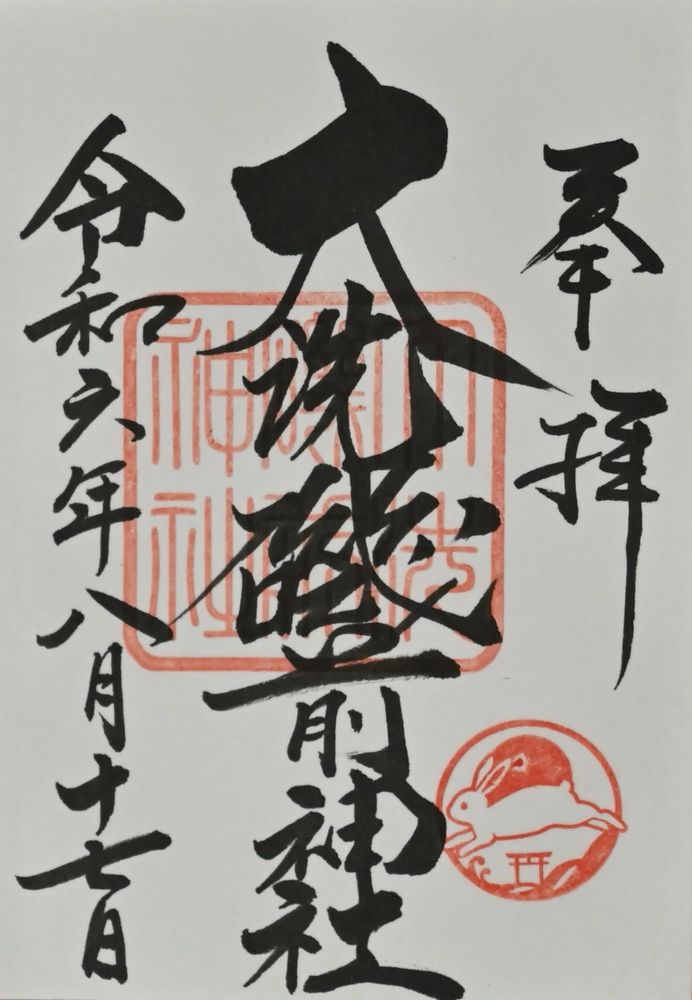 奉拝
大洗磯前神社
大洗磯前神社
令和六年八月十七日